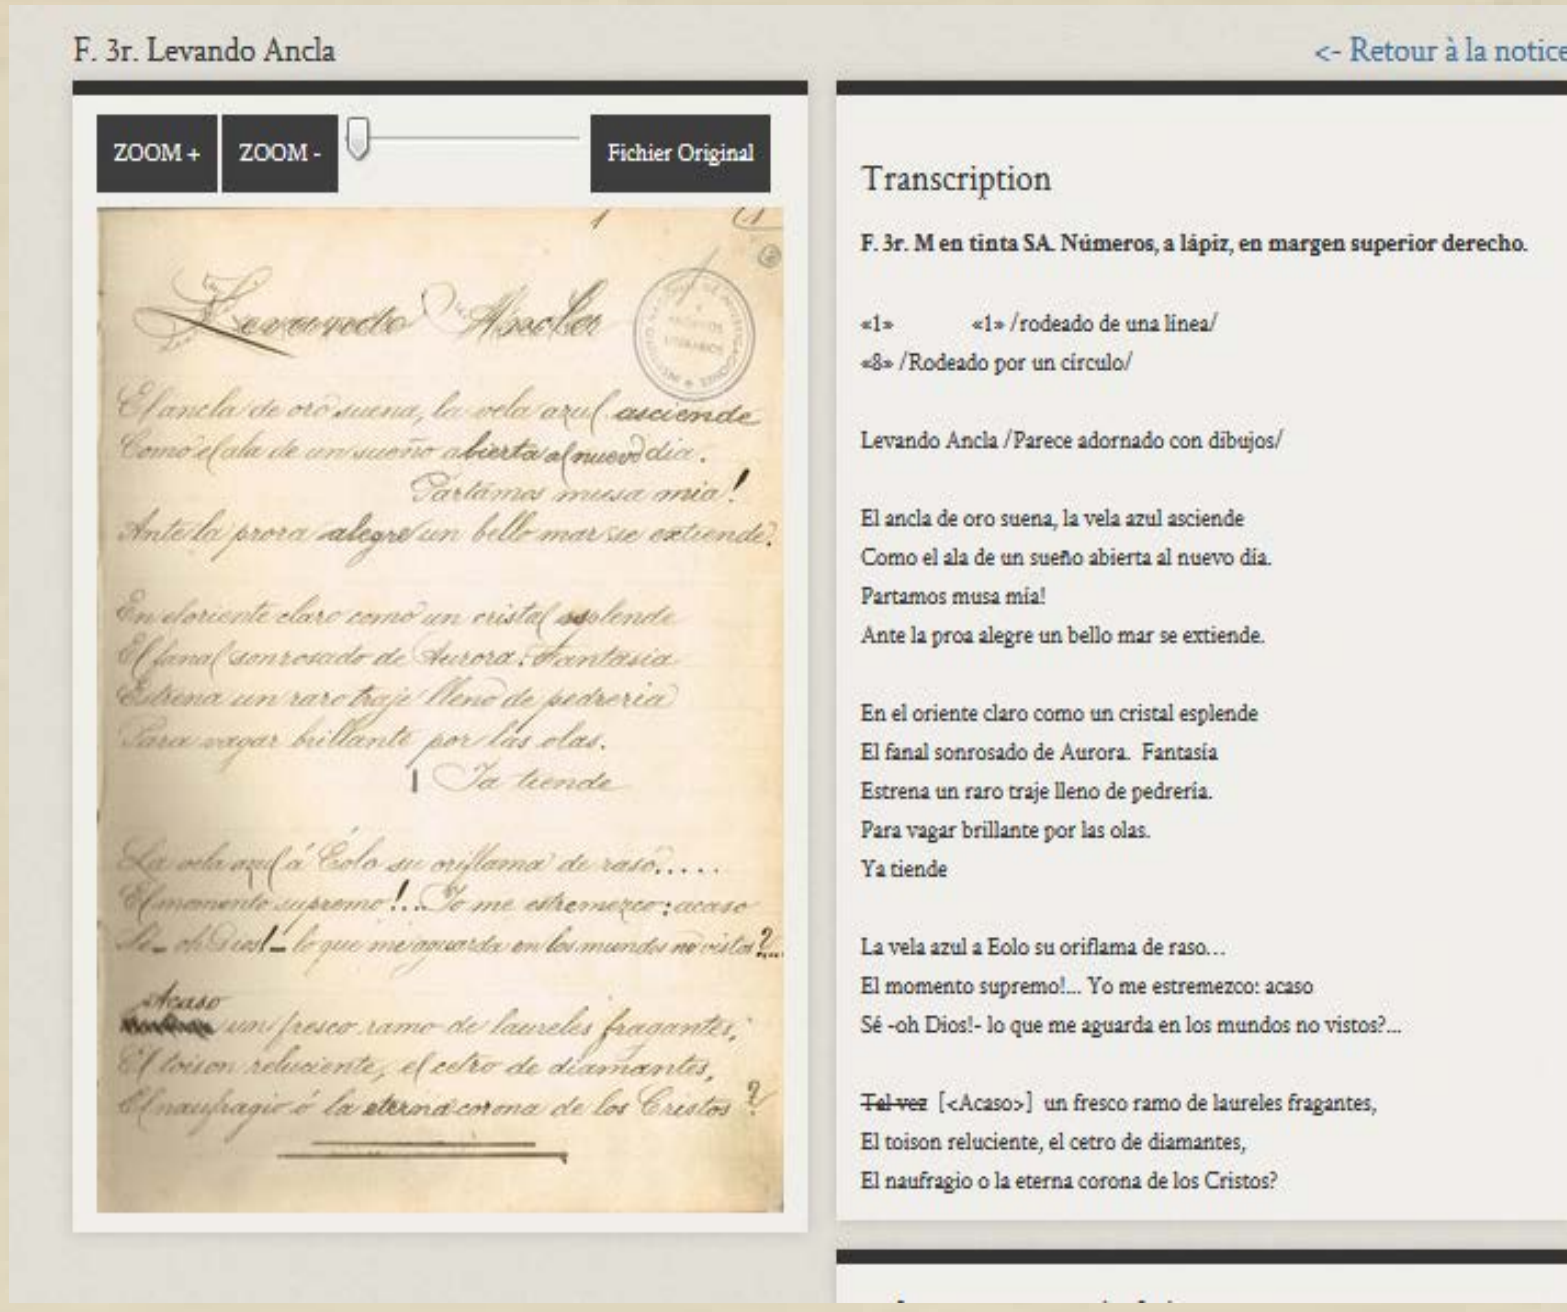 F. 3r. Levando Ancla
<- Retour à la notice
ZOOM +
ZOOM -
Fichier Original
1
(1
Levando Ancla
ARCHIVOS LITERARIOS
El ancla de oro suena, la vela azul asciende
Como el ala de un sueño abierta al nuevo dia.
Partámos musa mia!
Ante la prora alegre un bello mar se extiende.
En el oriente claro como un cristal esplende
El fanal sonrosado de Aurora. Fantasia
Estrena un raro traje lleno de pedreria
Para vagar brillante por las olas.
Ya tiende
La vela azul á Eolo su oriflama de raso.....
El momento supremo!... Yo me estremezco: acaso
Sé - oh Dios! - lo que me aguarda en los mundos no vistos?...
Acaso
un fresco ramo de laureles fragantes,
El toison reluciente, el cetro de diamantes,
El naufragio ó la eterna corona de los Cristos?
Transcription
F. 3r. M en tinta SA. Números, a lápiz, en margen superior derecho.
«1» «1» /rodeado de una línea/
«8» /Rodeado por un círculo/
Levando Ancla /Parece adornado con dibujos/
El ancla de oro suena, la vela azul asciende
Como el ala de un sueño abierta al nuevo día.
Partamos musa mía!
Ante la proa alegre un bello mar se extiende.
En el oriente claro como un cristal esplende
El fanal sonrosado de Aurora. Fantasía
Estrena un raro traje lleno de pedrería.
Para vagar brillante por las olas.
Ya tiende
La vela azul a Eolo su oriflama de raso...
El momento supremo!... Yo me estremezco: acaso
Sé -oh Dios!- lo que me aguarda en los mundos no vistos?...
Tal vez [<Acaso>] un fresco ramo de laureles fragantes,
El toison reluciente, el cetro de diamantes,
El naufragio o la eterna corona de los Cristos?